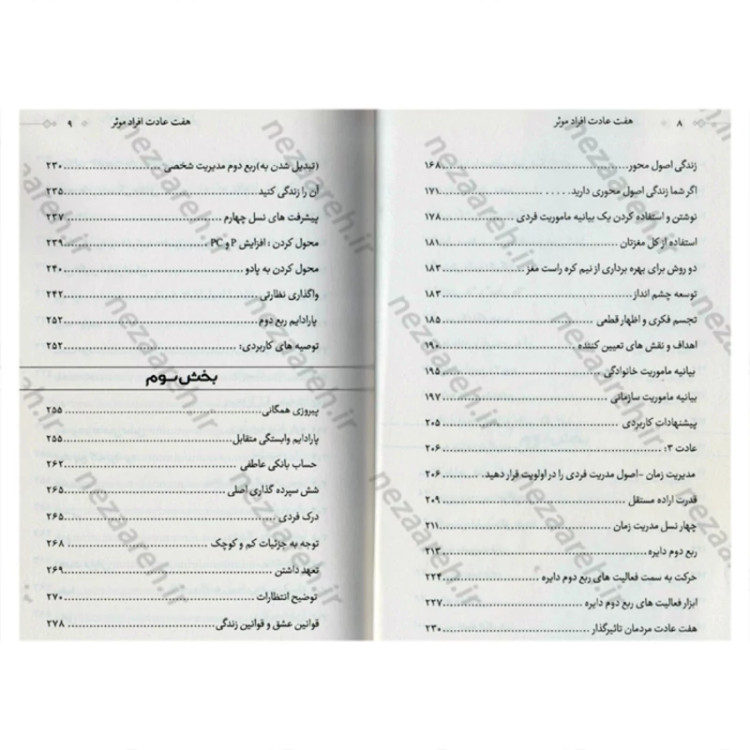 ۸ هفت عادت افراد موثر
زندگی اصول محور ........ ۱۶۸
اگر شما زندگی اصول محوری دارید ........ ۱۷۱
نوشتن و استفاده کردن یک بیانیه ماموریت فردی ........ ۱۷۸
استفاده از کل مغزتان ........ ۱۸۱
دو روش برای بهره برداری از نیم کره راست مغز ........ ۱۸۳
توسعه چشم انداز ........ ۱۸۳
تجسم فکری و اظهار قطعی ........ ۱۸۵
اهداف و نقش های تعیین کننده ........ ۱۹۰
بیانیه ماموریت خانوادگی ........ ۱۹۵
بیانیه ماموریت سازمانی ........ ۱۹۷
پیشنهادات کاربردی ........ ۲۰۵
عادت ۳: ........ ۲۰۶
مدیریت زمان -اصول مدریت فردی را در اولویت قرار دهید. ........ ۲۰۶
قدرت اراده مستقل ........ ۲۰۹
چهار نسل مدریت زمان ........ ۲۱۱
ربع دوم دایره ........ ۲۱۳
حرکت به سمت فعالیت های ربع دوم دایره ........ ۲۲۴
ابزار فعالیت های ربع دوم دایره ........ ۲۲۷
هفت عادت مردمان تاثیرگذار ........ ۲۳۰
هفت عادت افراد موثر ۹
(تبدیل شدن به)ربع دوم مدیریت شخصی ........ ۲۳۰
آن را زندگی کنید ........ ۲۳۵
پیشرفت های نسل چهارم ........ ۲۳۷
محول کردن : افزایش P و PC ........ ۲۳۹
محول کردن به پادو ........ ۲۴۰
واگذاری نظارتی ........ ۲۴۲
پارادایم ربع دوم ........ ۲۵۲
توصیه های کاربردی: ........ ۲۵۲
بخش سوم
پیروزی همگانی ........ ۲۵۵
پارادایم وابستگی متقابل ........ ۲۵۵
حساب بانکی عاطفی ........ ۲۶۲
شش سپرده گذاری اصلی ........ ۲۶۵
درک فردی ........ ۲۶۵
توجه به جزئیات کم و کوچک ........ ۲۶۸
تعهد داشتن ........ ۲۶۹
توضیح انتظارات ........ ۲۷۰
قوانین عشق و قوانین زندگی ........ ۲۷۸
nezaareh.ir